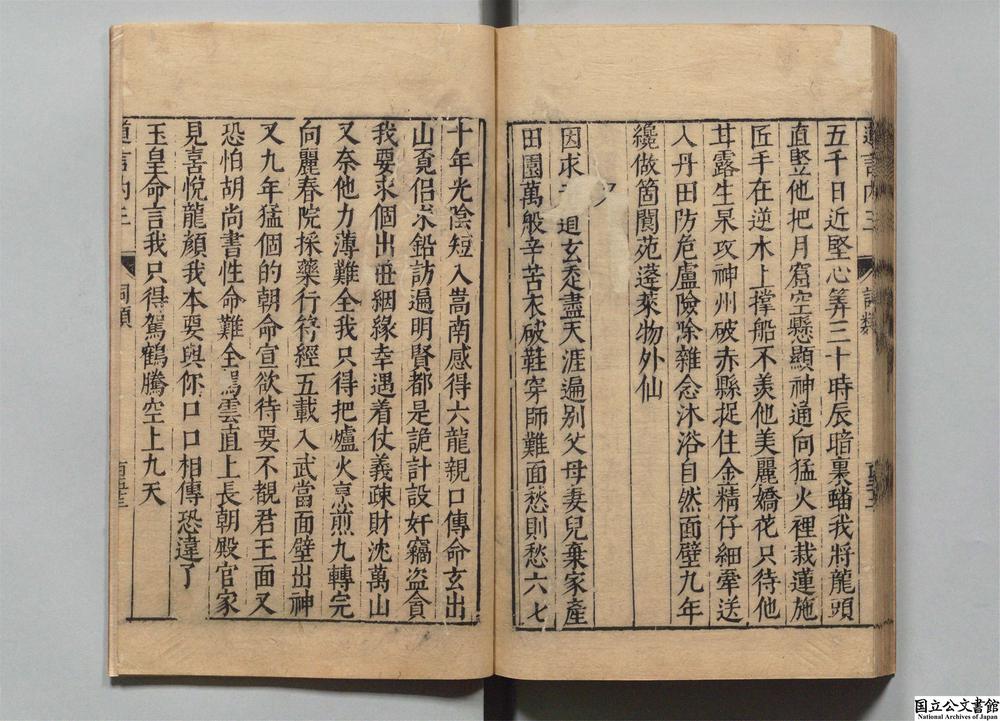 五千日近堅心筭三十時辰暗裏蟠我將龍頭
直竪他把月窟空懸顯神通向猛火裡栽蓮施
匠手在逆木上撑船不羙他美麗嬌花只待他
甘露生杲攻神州破赤縣捉住金精仔細牽送
入丹田防危慮險除雜念沐浴自然面壁九年
纔做箇閬苑蓬萊物外仙
又
因求 迴玄走盡天涯遍别父母妻兒棄家產
田園萬般辛苦衣破鞋穿師難面愁則愁六七
十年光陰短入嵩南感得六龍親口傳命玄出
山覔侣求鉛訪遍明賢都是詭計設奸竊盗貪
我要求個出世姻緣幸遇着仗義疎財沈萬山
又奈他力薄難全我只得把爐火烹煎九轉完
向麗春院採藥行符經五載入武當面壁出神
又九年猛個的朝命宣欲待要不覩君王面又
恐怕胡尚書性命難全駕雲直上長朝殿官家
見喜悅龍顔我本要與你口口相傳恐違了
玉皇命言我只得駕鶴騰空上九天
道言内三
詞類
国立公文書館
National Archives of Japan